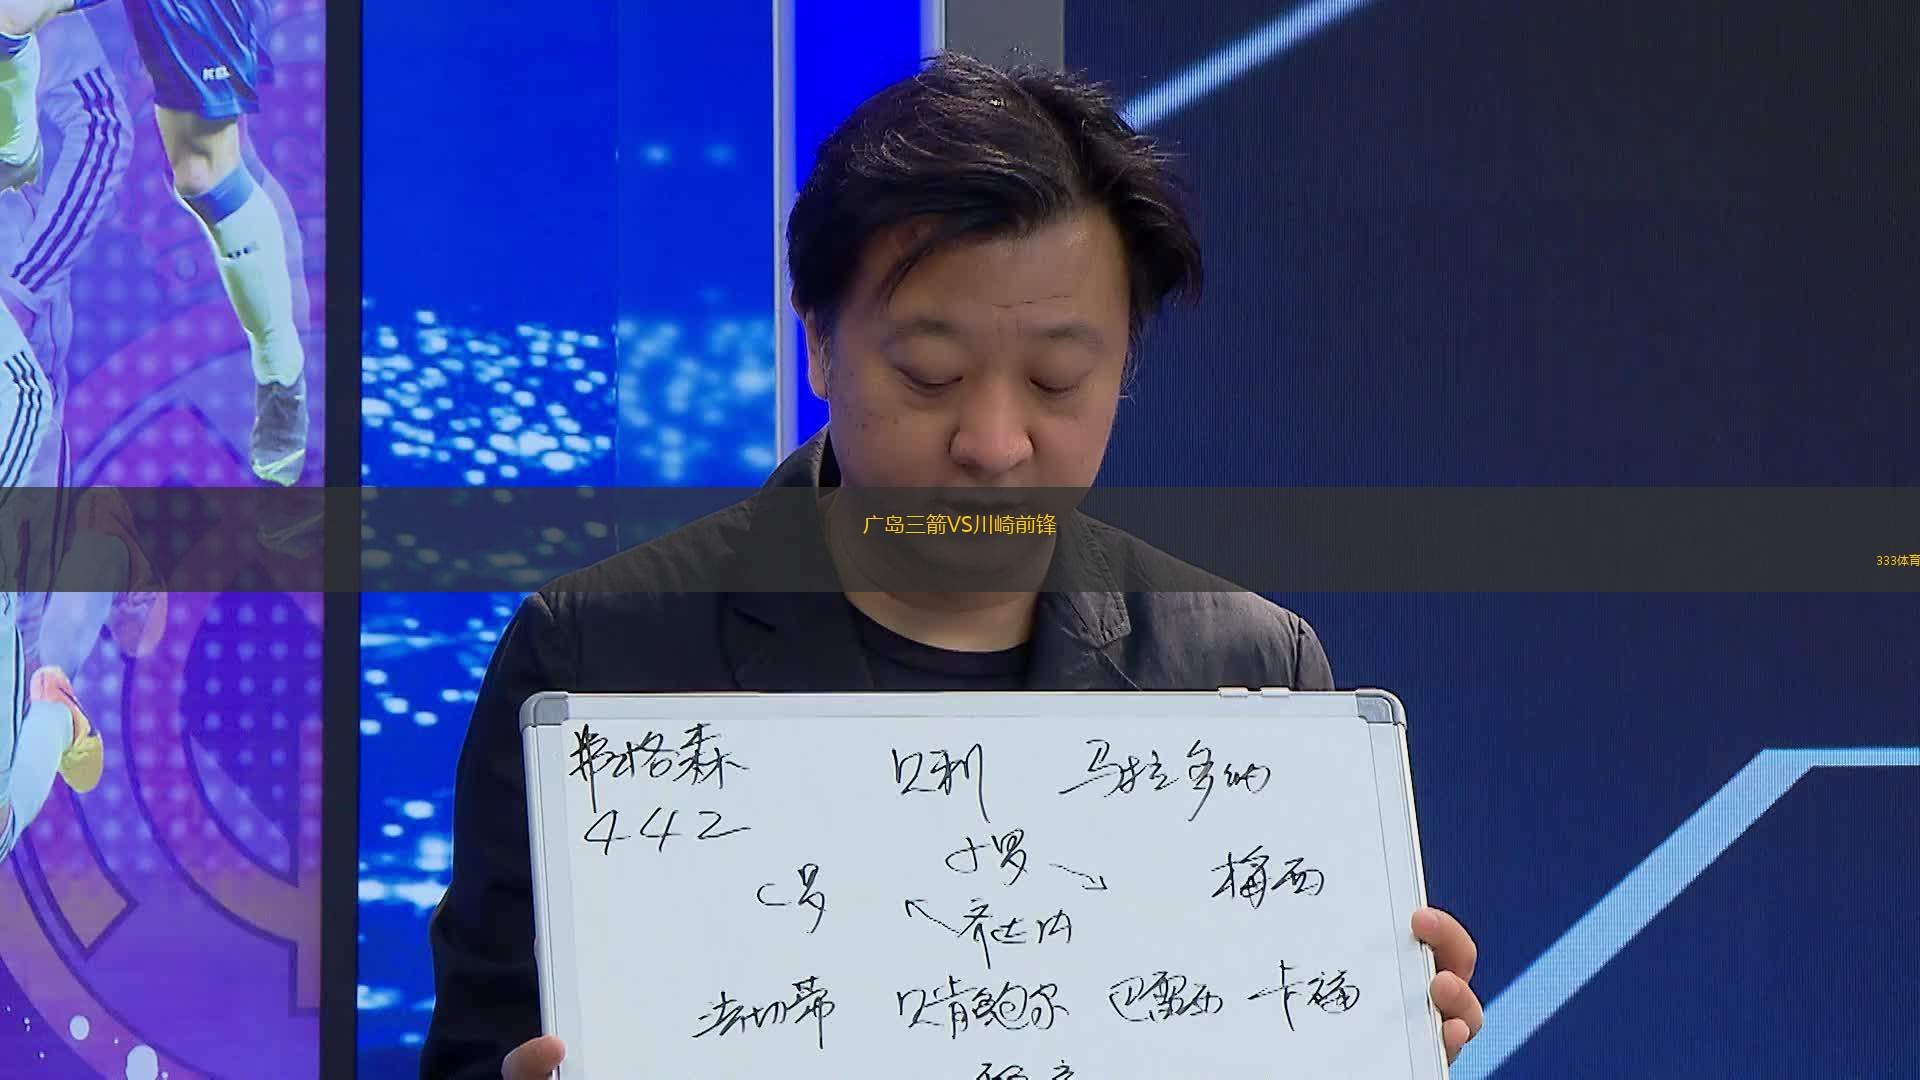 广岛三箭VS川崎前锋
333体育
弗格森 贝利 马拉多纳
442
小罗
C罗 梅西
齐达内
法切蒂 贝肯鲍尔 巴雷西 卡福